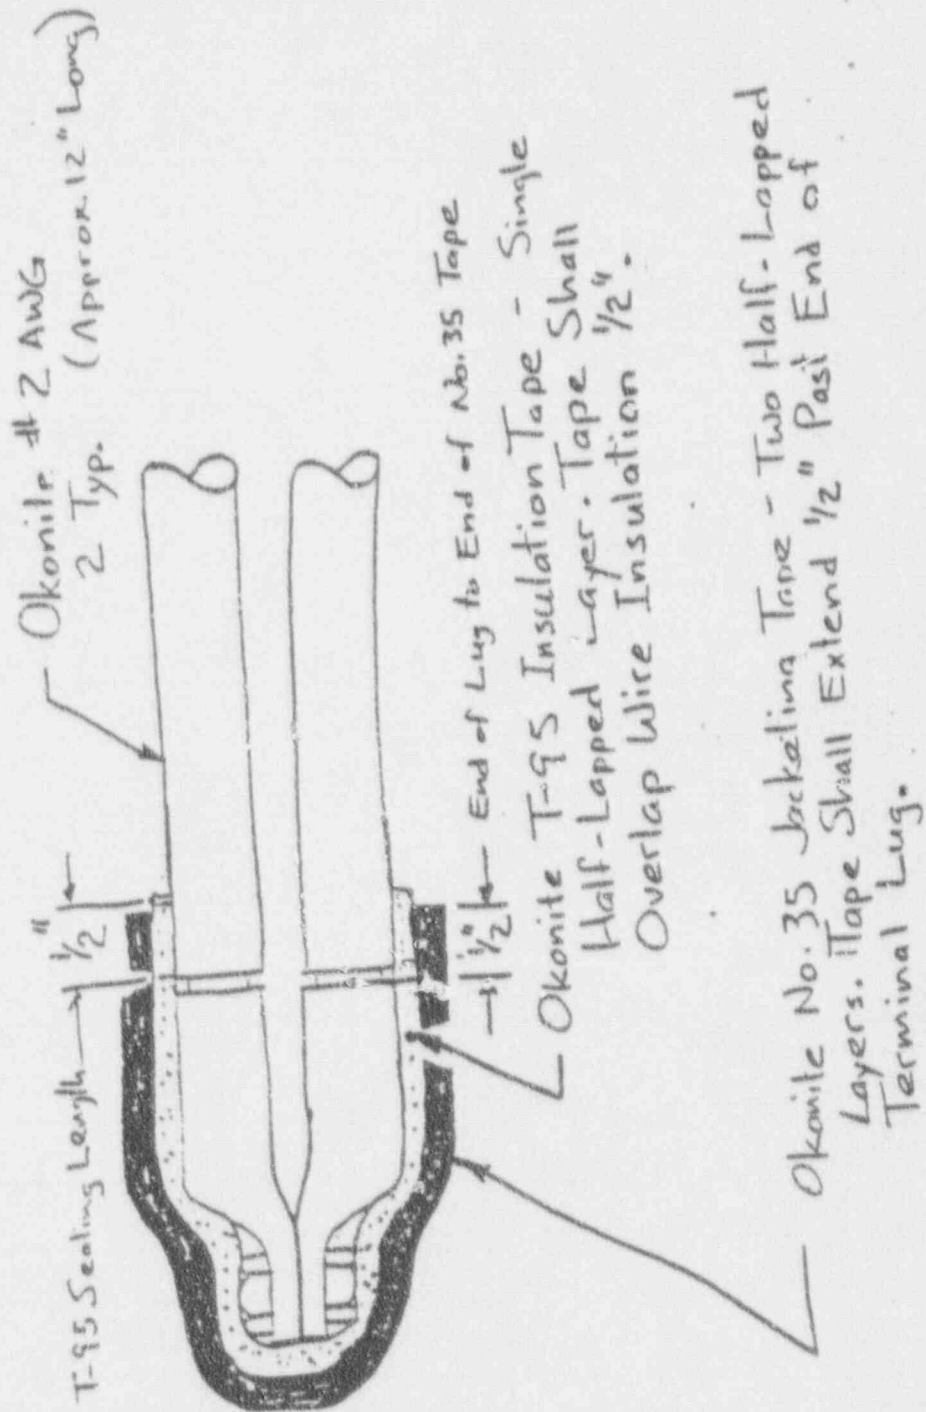 Okonite # 2 AWG
2 Typ. (Approx. 12" Long)
T-95 Sealing Length
1/2"
1/2"
End of Lug to End of No. 35 Tape
Okonite T-95 Insulation Tape - Single
Half-Lapped Layer. Tape Shall
Overlap Wire Insulation 1/2".
Okonite No. 35 Jacketing Tape - Two Half-Lapped
Layers. Tape Shall Extend 1/2" Past End of
Terminal Lug.